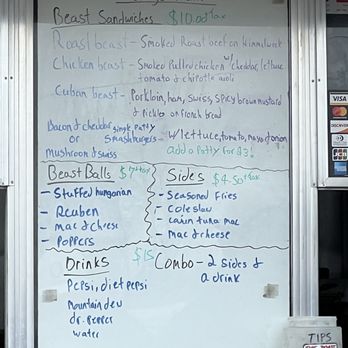 Beast Sandwiches $10.00+tax
Roast beast - Smoked Roast beef on Kimmelweck
Chicken beast - Smoked Pulled chicken w/ cheddar, lettuce
tomato & chipotle aioli
Cuban beast - Porkloin, ham, Swiss, Spicy brown mustard
& Pickles on French bread
Bacon & cheddar single patty
or Smashburgers - w/ lettuce, tomato, mayo & onion
Mushroom & swiss add a patty for $3!
Beast Balls
- Stuffed hungarian
- Reuben
- mac & cheese
- Poppers
Sides $4.50+tax
- Seasoned Fries
- Coleslaw
- cajun tuna mac
- Mac & cheese
$15 Combo - 2 sides &
a drink
Drinks
Pepsi, diet pepsi
mountain dew
dr. pepper
water
VISA
DISCOVER
TIPS